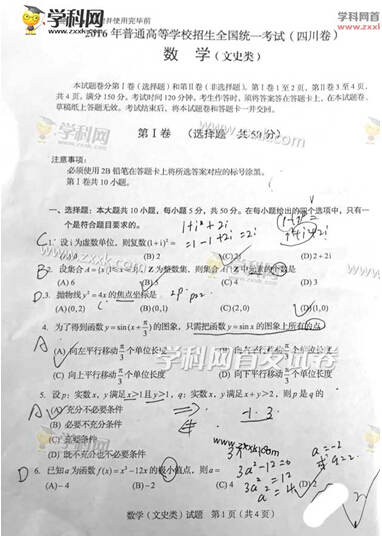 www.zxxk.com
并使用完毕前
2016 年普通高等学校招生全国统一考试(四川卷)
数 学(文史类)
本试题卷分第Ⅰ卷(选择题)和第Ⅱ卷(非选择题)。第Ⅰ卷 1 至 2 页,第Ⅱ卷 3 至 4 页,
共 4 页。满分 150 分。考试时间 120 分钟。考生作答时,须将答案答在答题卡上,在本试题卷、
草稿纸上答题无效。考试结束后,将本试题卷和答题卡一并交回。
学科网
第Ⅰ卷 (选择题 共 50 分)
注意事项:
必须使用 2B 铅笔在答题卡上将所选答案对应的标号涂黑。
第Ⅰ卷共 10 小题。
一、选择题:本大题共 10 小题,每小题 5 分,共 50 分。在每小题给出的四个选项中,只有一
个是符合题目要求的。
C 1. 设 i 为虚数单位,则复数(1+i)²= 
(A) 0 (B) 2 (C) 2i (D) 2+2i
B 2. 设集合 A={x|1≤x≤5},Z 为整数集,则集合 A∩Z 中元素的个数是
D 3. 抛物线 y²=4x 的焦点坐标是
(A) (0,2) (B) (0,1) (C) (2,0) (D) (1,0)
4. 为了得到函数 y=sin(x+π/3)的图象,只需把函数 y=sin x 的图象上所有的点
(A) 向左平行移动 π/3 个单位长度
学科网首发试卷
(C) 向上平行移动 π/3 个单位长度 (D) 向下平行移动 π/3 个单位长度
A 5. 设 p:实数 x,y 满足 x>1 且 y>1,q:实数 x,y 满足 x+y>2,则 p 是 q 的
(A) 充分不必要条件
(B) 必要不充分条件
(C) 充要条件
(D) 既不充分也不必要条件
www.zxxk.com
D 6. 已知 a 为函数 f(x)=x³-12x 的极小值点,则 a=
(A) -4 (B) -2 (C) 4 (D) 2
3a²-12=0
3a²=12
a²=4
数学(文史类)试题 第 1 页(共 4 页)